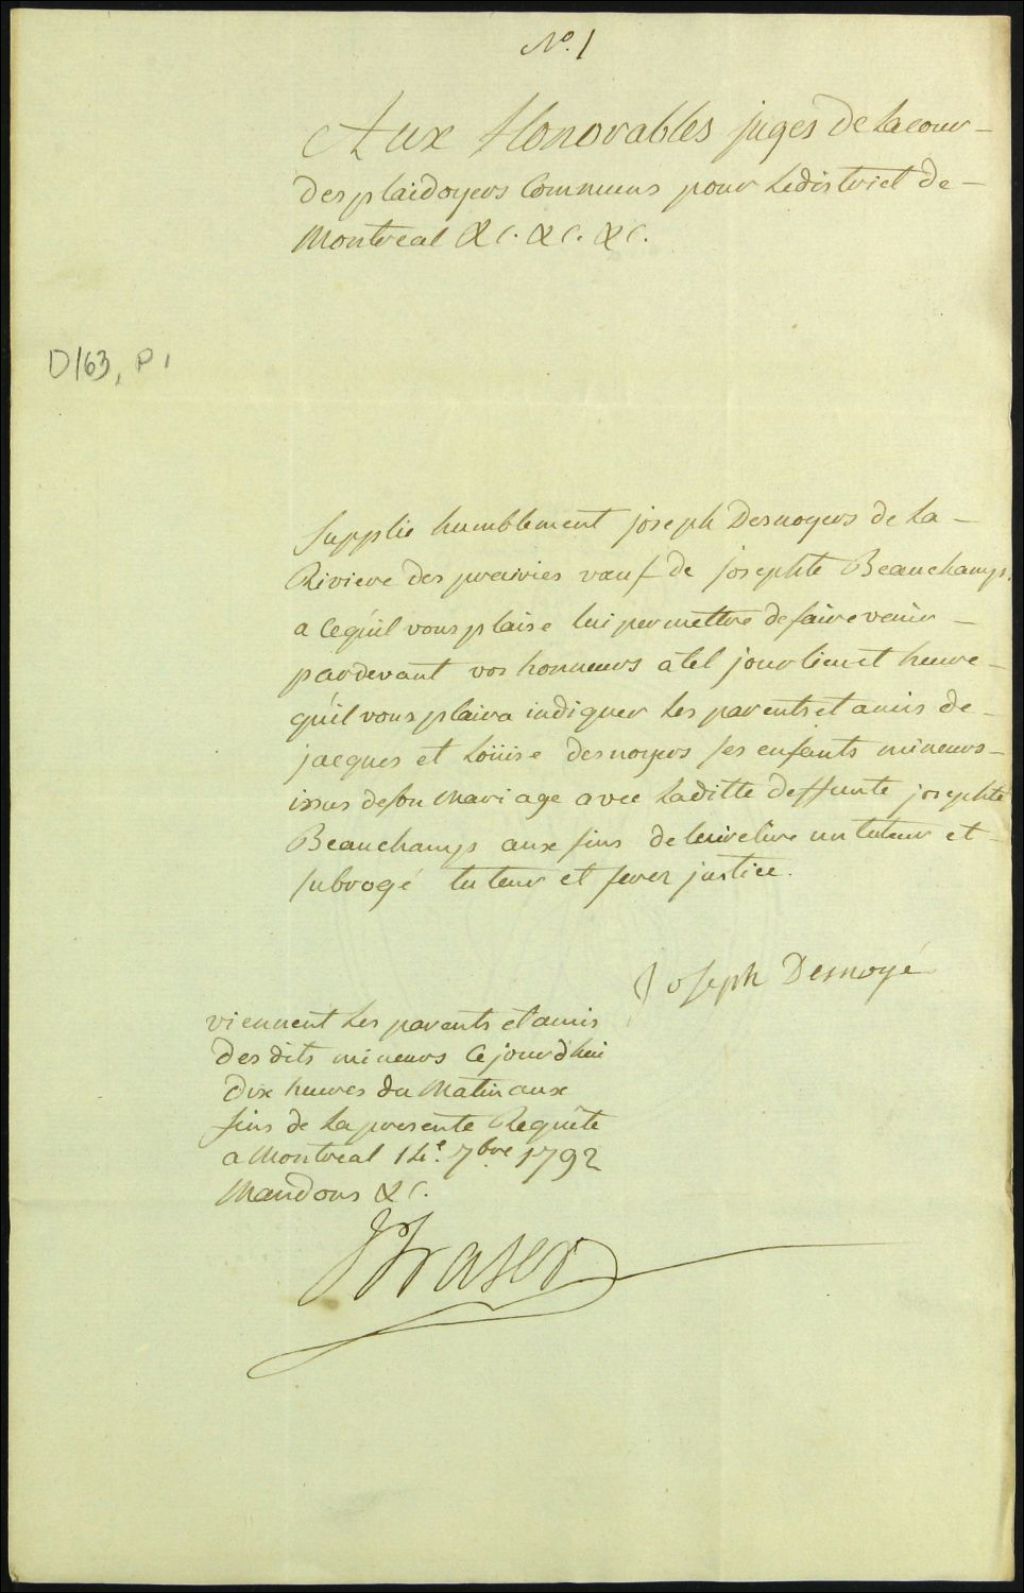 N.º 1
Aux Honorables juges de la cour -
des plaidoyers Communs pour Le district de -
Montreal &c. &c. &c.
D163, P 1
Supplie humblement joseph Desnoyers de La -
Riviere des prairies veuf de josephte Beauchamps
a Cequ'il vous plaise lui permettre de faire venir -
pardevant vos honneurs a tel jour lieu et heure -
qu'il vous plaira indiquer Les parents et amis de -
jacques et Loüise desnoyers ses enfants mineurs -
issus de son Mariage avec Laditte deffunte josephte
Beauchamps aux fins de leur elire un tuteur et -
subrogé tuteur et ferez justice.
Joseph Desnoyé
viennent Les parents et amis
des dits mineurs Cejourd'hui
dix heures du Matin aux
fins de La presente Requête
a Montreal 14e. 7bre 1792
Mandons &c.
JFraser